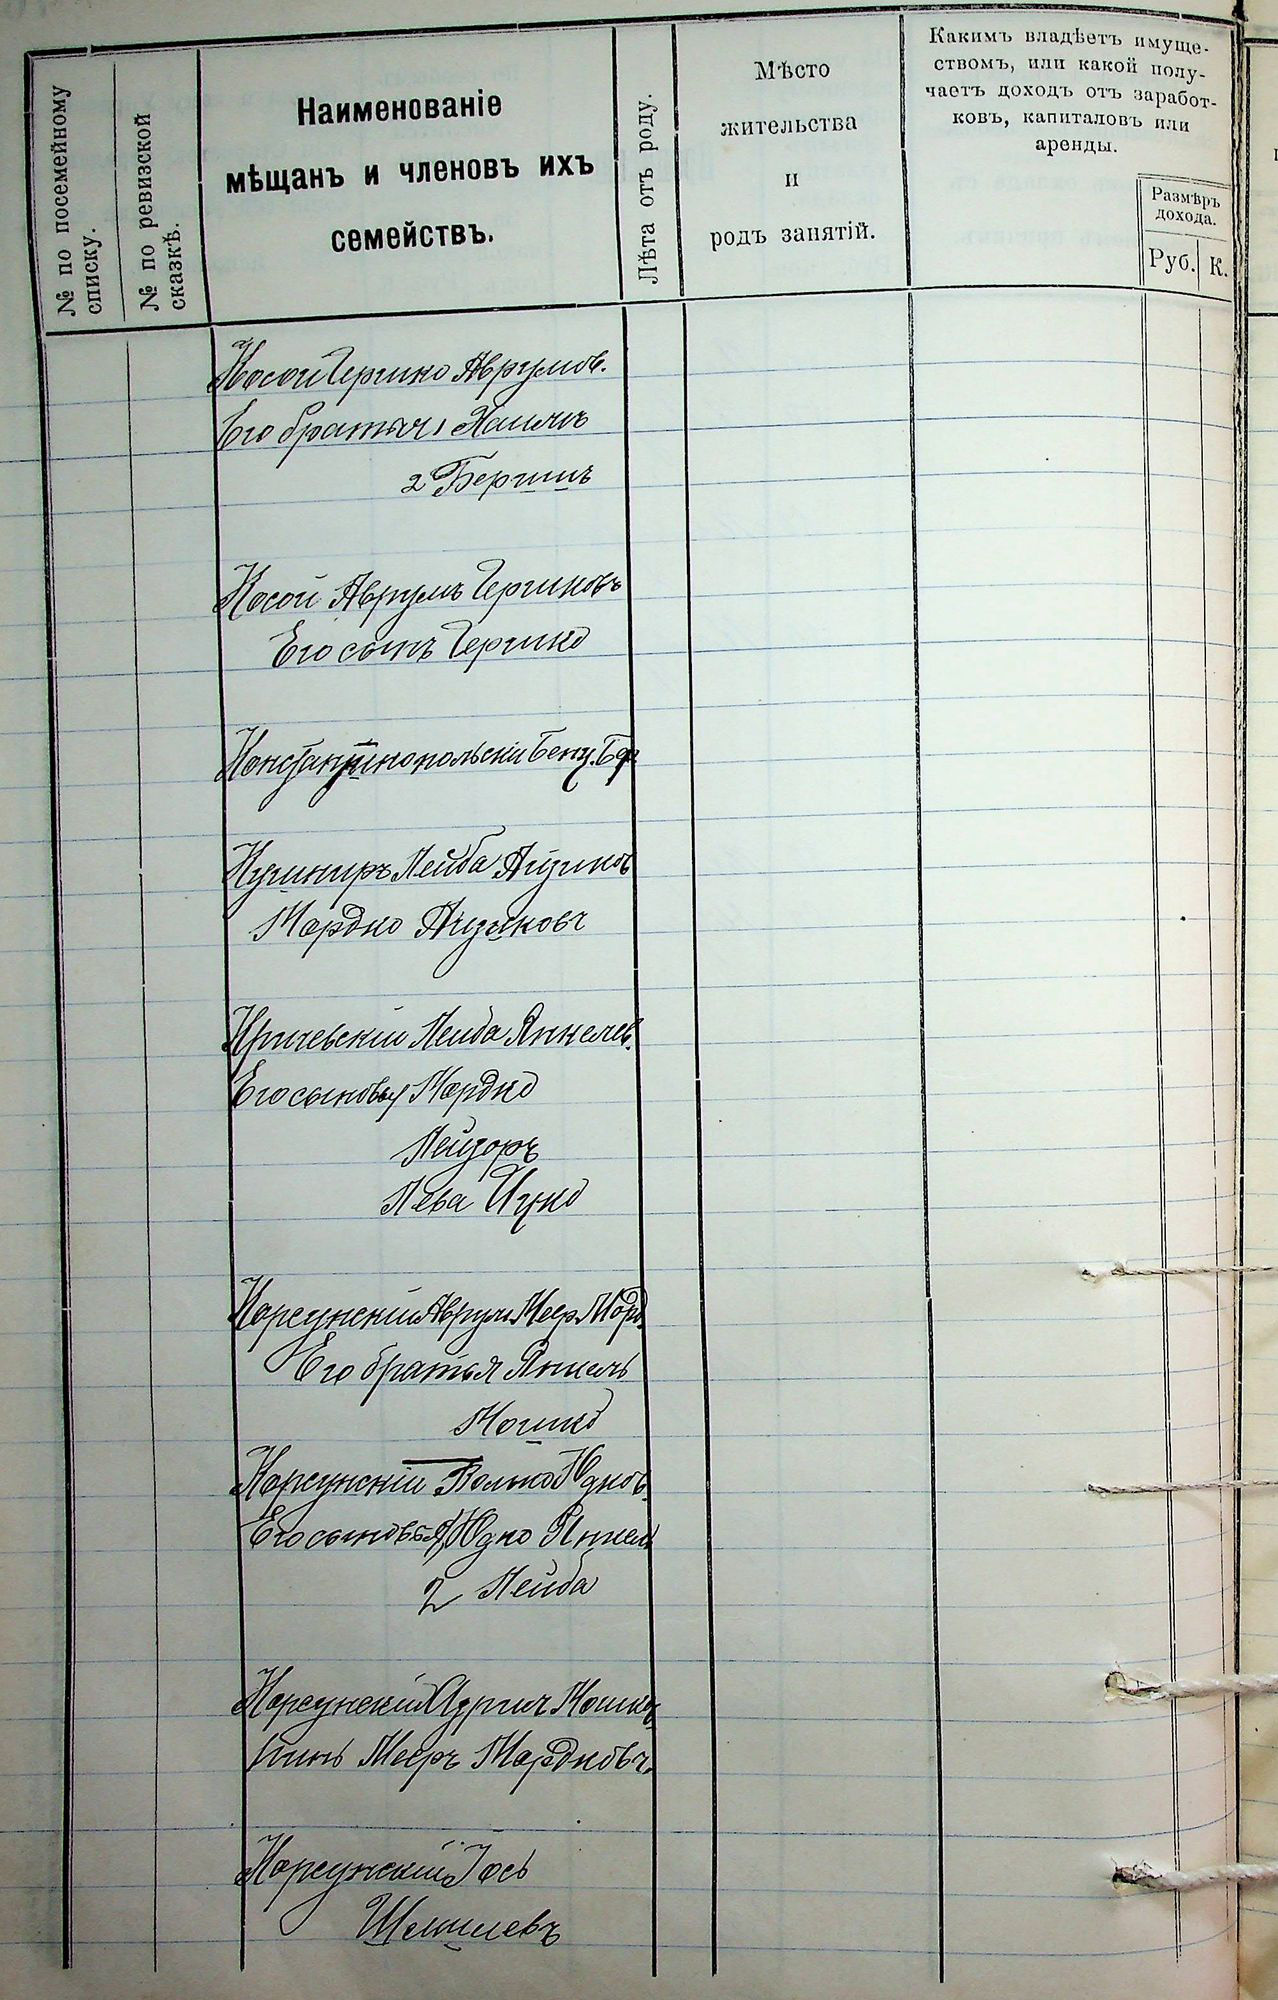 № по посемейному
списку.
№ по ревизской
сказкѣ.
Наименованіе
мѣщанъ и членовъ ихъ
семействъ.
Лѣта отъ роду.
Мѣсто
жительства
и
родъ занятій.
Какимъ владѣетъ имуще-
ствомъ, или какой полу-
чаетъ доходъ отъ заработ-
ковъ, капиталовъ или
аренды.
Размѣръ
дохода.
Руб.
К.
Косой Гершко Аврумов.
Его братья 1 Хаимъ
2 Бершъ
Косой Аврумъ Гершковъ
Его сынъ Гершко
Константинопольскій Бенц. Бер.
Кушниръ Лейба Айзиков
Мордко Айзиковъ
Кричевскій Лейба Янкелев.
Его сыновья Мордко
Лейзоръ
Лева Ицко
Корсунскій Аврум Меер. Морд.
Его братья Янкель
Мошко
Корсунскій Волько Юдков.
Его сыновья 1) Юдко Янкель
2 Лейба
Корсунскій Мошков
Мееръ Мордковъ.
Корсунскій Іось
Шмилевъ